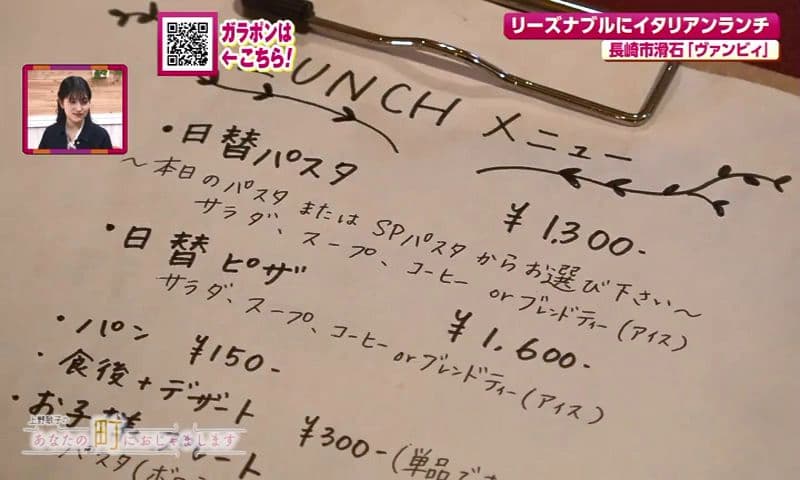 リーズナブルにイタリアンランチ
長崎市滑石「ヴァンビィ」
ガラポンは
←こちら!
LUNCH メニュー
・日替パスタ ¥1,300-
~本日のパスタ または SPパスタからお選び下さい~
サラダ、スープ、コーヒー or ブレンドティー(アイス)
・日替ピザ ¥1,600-
サラダ、スープ、コーヒー or ブレンドティー(アイス)
・パン ¥150-
・食後+デザート ¥300-(単品でき
・お子様プレート
パスタ(ボロ
上野敬子の
あなたの町におじゃまします